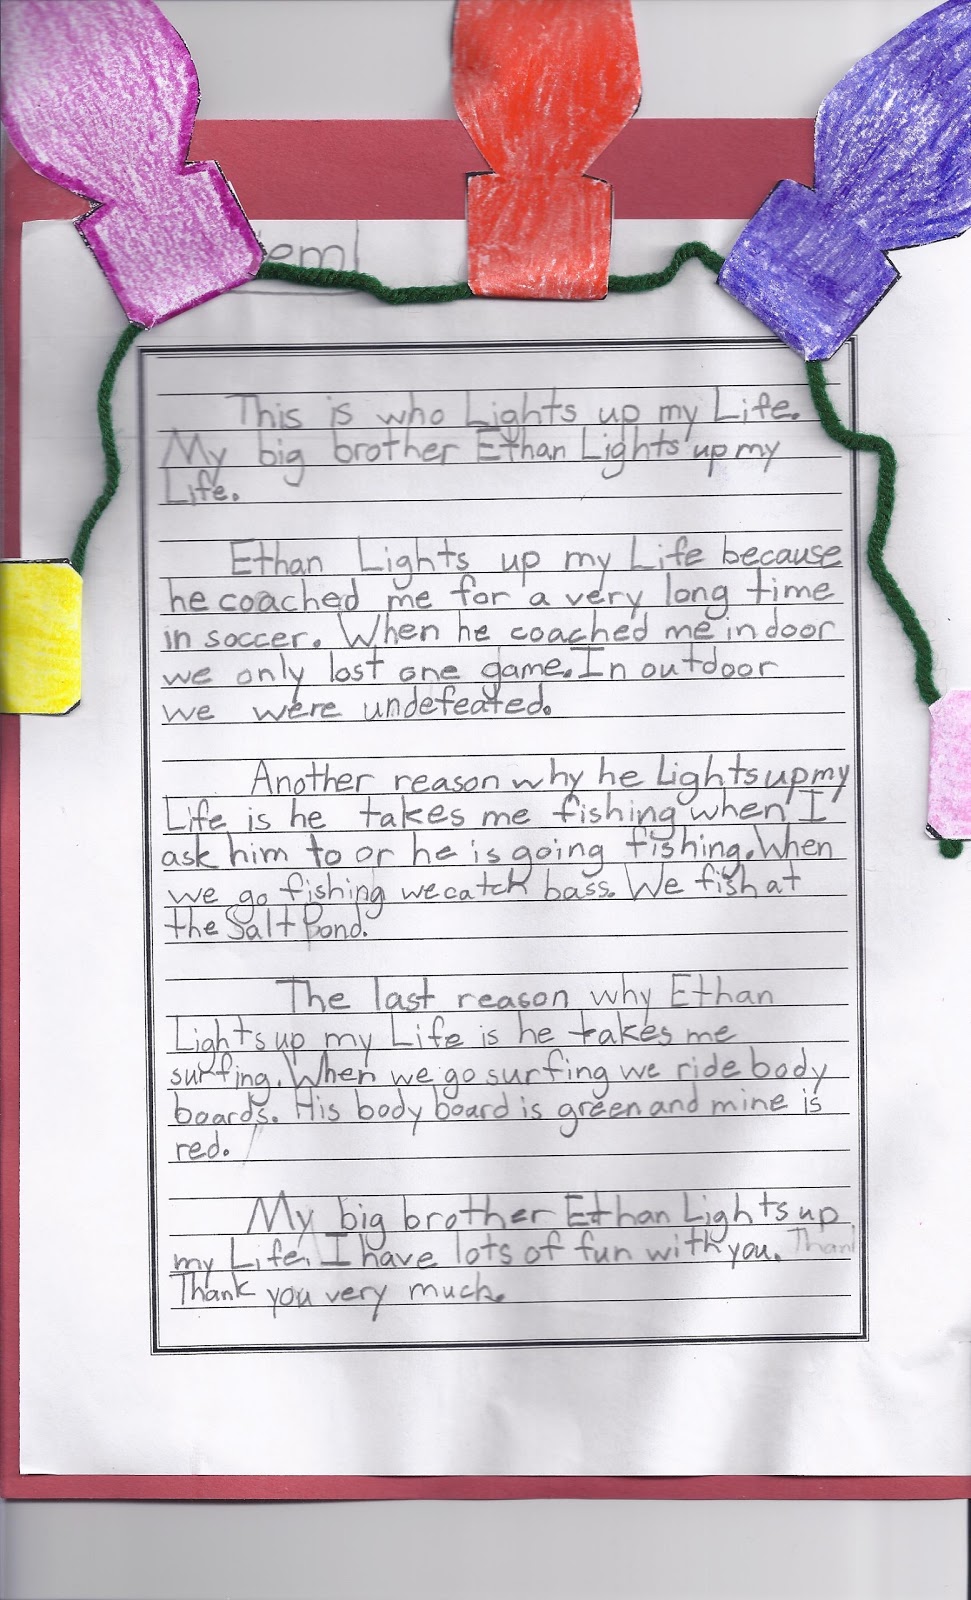 This is who Lights up my Life.
My big brother Ethan Lights up my
Life.
Ethan Lights up my Life because
he coached me for a very long time
in soccer. When he coached me indoor
we only lost one game. In outdoor
we were undefeated.
Another reason why he Lights up my
Life is he takes me fishing when I
ask him to or he is going fishing. When
we go fishing we catch bass. We fish at
the Salt Pond.
The last reason why Ethan
Lights up my Life is he takes me
surfing. When we go surfing we ride body
boards. His body board is green and mine is
red.
My big brother Ethan Lights up
my Life. I have lots of fun with you.
Thank you very much.